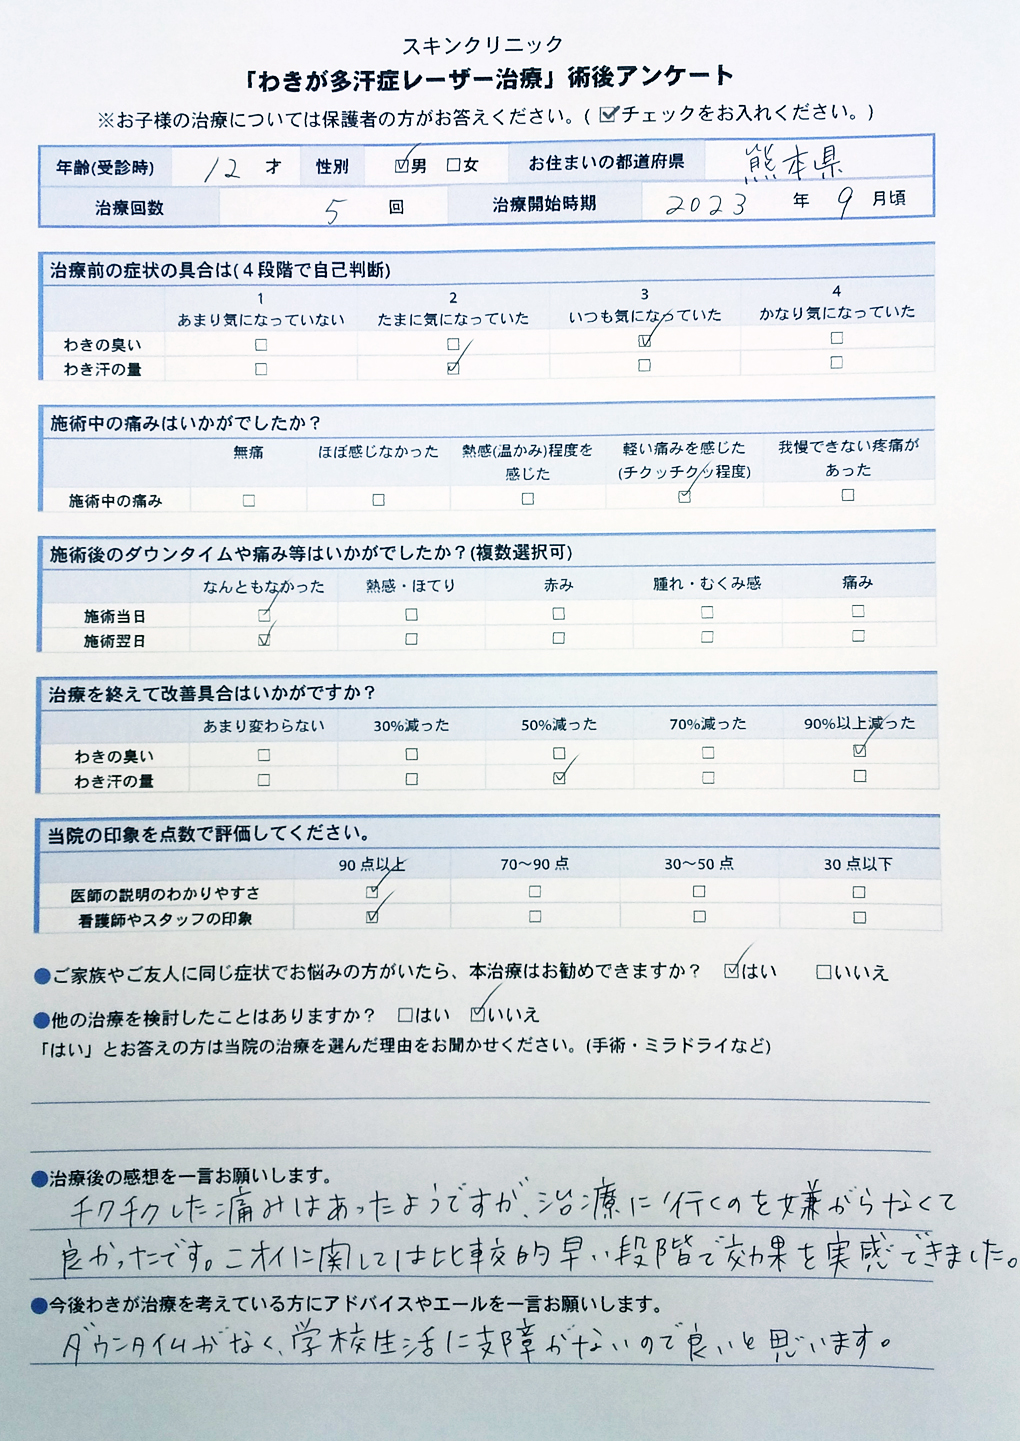 スキンクリニック
「わきが多汗症レーザー治療」術後アンケート
※お子様の治療については保護者の方がお答えください。( ☑チェックをお入れください。)
年齢(受診時) 12 才 性別 ☑男 □女 お住まいの都道府県 熊本県
治療回数 5 回 治療開始時期 2023 年 9 月頃
治療前の症状の具合は(４段階で自己判断)
1 2 3 4
あまり気になっていない たまに気になっていた いつも気になっていた かなり気になっていた
わきの臭い □ □ ☑ □
わき汗の量 □ ☑ □ □
施術中の痛みはいかがでしたか？
無痛 ほぼ感じなかった 熱感(温かみ)程度を 軽い痛みを感じた 我慢できない疼痛が
感じた (チクッチクッ程度) あった
施術中の痛み □ □ □ ☑ □
施術後のダウンタイムや痛み等はいかがでしたか？(複数選択可)
なんともなかった 熱感・ほてり 赤み 腫れ・むくみ感 痛み
施術当日 ☑ □ □ □ □
施術翌日 ☑ □ □ □ □
治療を終えて改善具合はいかがですか？
あまり変わらない 30%減った 50%減った 70%減った 90%以上減った
わきの臭い □ □ □ □ ☑
わき汗の量 □ □ ☑ □ □
当院の印象を点数で評価してください。
90 点以上 70〜90 点 30〜50 点 30 点以下
医師の説明のわかりやすさ ☑ □ □ □
看護師やスタッフの印象 ☑ □ □ □
●ご家族やご友人に同じ症状でお悩みの方がいたら、本治療はお勧めできますか？ ☑はい □いいえ
●他の治療を検討したことはありますか？ □はい ☑いいえ
「はい」とお答えの方は当院の治療を選んだ理由をお聞かせください。(手術・ミラドライなど)
●治療後の感想を一言お願いします。
チクチクした痛みはあったようですが、治療に行くのを嫌がらなくて
良かったです。ニオイに関しては比較的早い段階で効果を実感できました。
●今後わきが治療を考えている方にアドバイスやエールを一言お願いします。
ダウンタイムがなく、学校生活に支障がないので良いと思います。